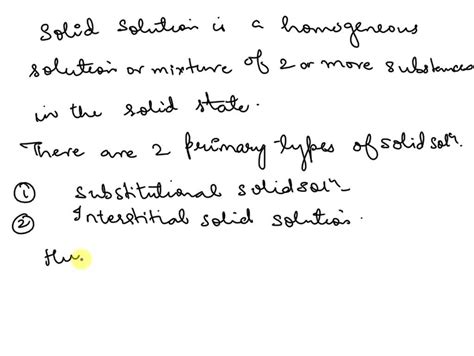 Solid Solution is a homogeneous
solution or mixture of 2 or more substances
in the solid state.
There are 2 primary types of solid solⁿ.
① Substitutional solid solⁿ
② Interstitial solid solution.
Hu.